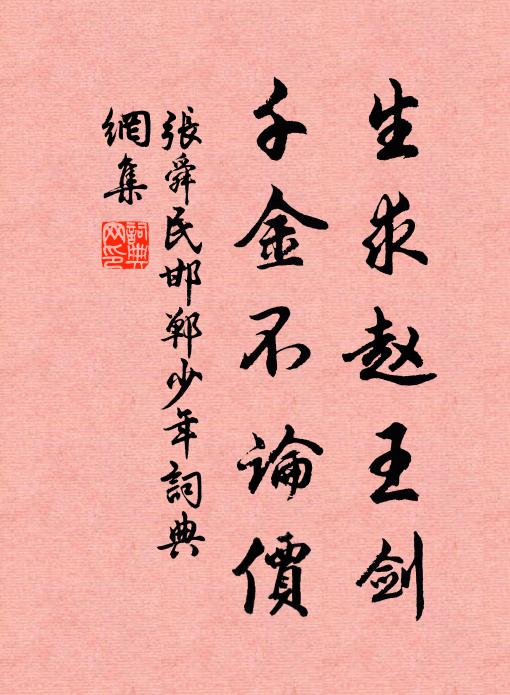 生求赵王剑
千金不論價
張舜民邯鄲少年詞典
網集
詞典
网印